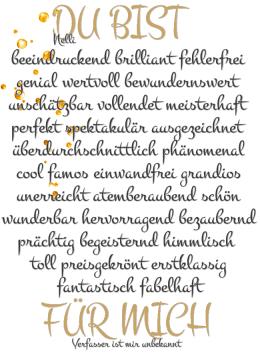 DU BIST
Nelli
beeindruckend brilliant fehlerfrei
genial wertvoll bewundernswert
unschätzbar vollendet meisterhaft
perfekt spektakulär ausgezeichnet
überdurchschnittlich phänomenal
cool famos einwandfrei grandios
unerreicht atemberaubend schön
wunderbar hervorragend bezaubernd
prächtig begeisternd himmlisch
toll preisgekrönt erstklassig
fantastisch fabelhaft
FÜR MICH
Verfasser ist mir unbekannt